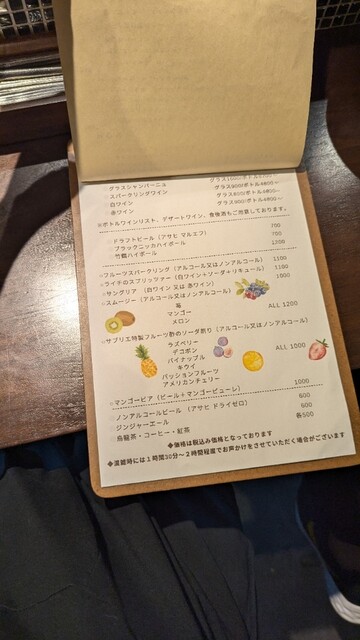 グラスシャンパーニュ
スパークリングワイン グラス900/ボトル4800～
白ワイン グラス800/ボトル4800～
赤ワイン グラス800/ボトル4800～
※ボトルワインリスト、デザートワイン、食後酒もご用意しております。
ドラフトビール（アサヒ マルエフ） 700
ブラックニッカハイボール 700
竹鶴ハイボール 1200
○フルーツスパークリング（アルコール又はノンアルコール） 1100
○ライチロスプリッツァー（白ワイン＋ソーダ＋リキュール） 1100
○サングリア （白ワイン 又は 赤ワイン） 1000
○スムージー（アルコール又はノンアルコール）
苺
マンゴー ALL 1200
メロン
○サプリエ特製フルーツ酢のソーダ割り（アルコール又はノンアルコール）
ラズベリー
デコポン
パイナップル ALL 1000
キウイ
パッションフルーツ
アメリカンチェリー
○マンゴービア（ビール＋マンゴーピューレ） 1000
ノンアルコールビール （アサヒ ドライゼロ） 600
ジンジャーエール 600
烏龍茶・コーヒー・紅茶 各500
◆価格は税込み価格となっております
◆混雑時には１時間30分～２時間程度でお声かけをさせていただく場合がございます